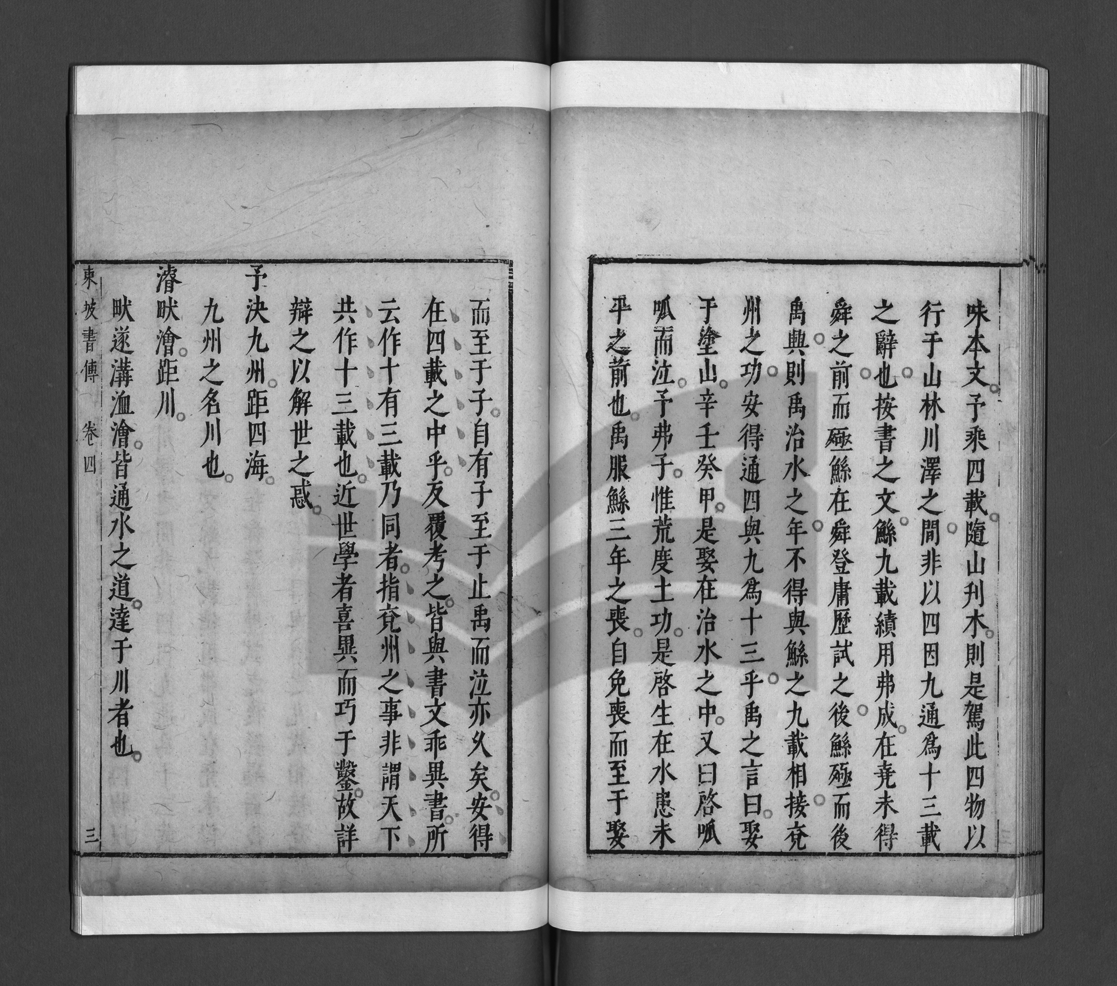 味本文予乘四載隨山刋木則是駕此四物以
行于山林川澤之間非以四因九通爲十三載
之辭也按書之文鯀九載績用弗成在堯未得
舜之前而殛鯀在舜登庸歷試之後鯀殛而後
禹興則禹治水之年不得與鯀之九載相接兗
州之功安得通四與九爲十三乎禹之言曰娶
于塗山辛壬癸甲是娶在治水之中又曰啓呱
呱而泣予弗子惟荒度土功是啓生在水患未
平之前也禹服鯀三年之喪自免喪而至于娶
而至于子自有子至于止禹而泣亦久矣安得
在四載之中乎反覆考之皆與書文乖異書所
云作十有三載乃同者指兗州之事非謂天下
共作十三載也近世學者喜異而巧于鑿故詳
辯之以解世之惑
予決九州距四海
九州之名川也
濬畎澮距川
畎遂溝洫澮皆通水之道達于川者也
東坡書傳 卷四 三